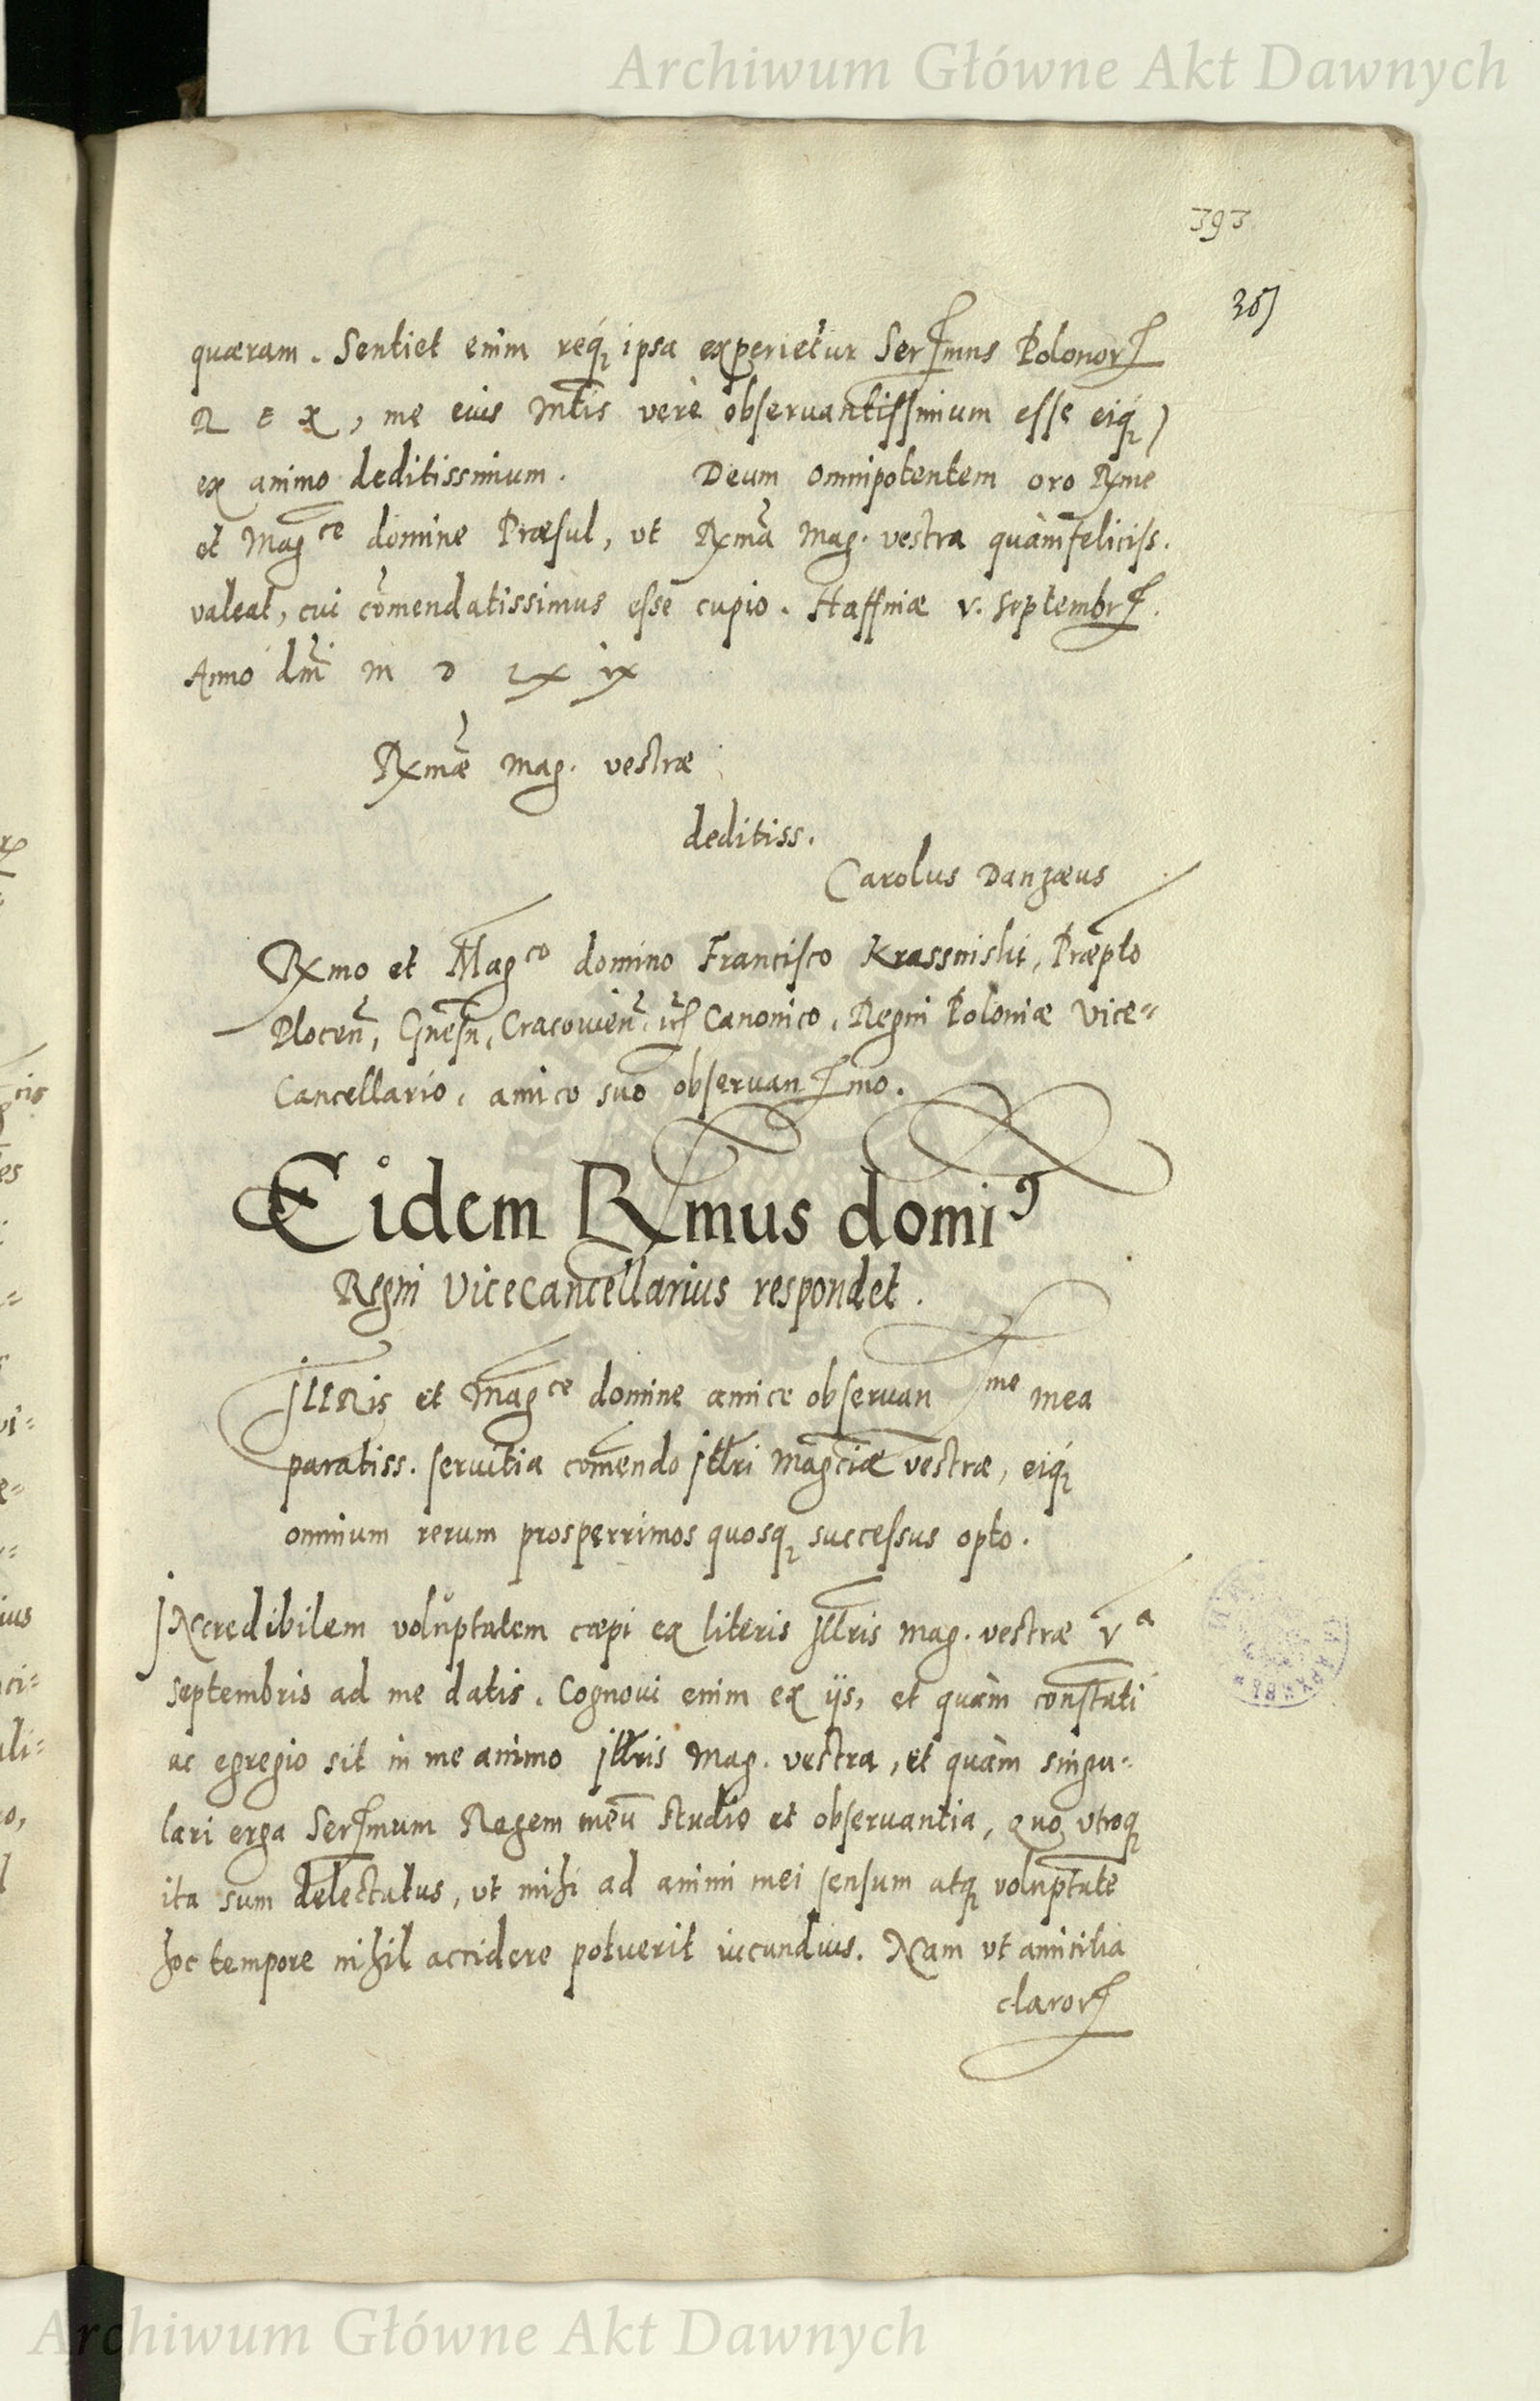 Archiwum Główne Akt Dawnych
393
quæram. Sentiet enim req́ꝫ ipsa experietur Serſmus Polonorꝭ
R E X, me eius Mtis verè observantissimum esse eiq́ꝫ
ex animo deditissimum. Deum omnipotentem oro Rxme
et Magce domine Præsul, vt Rxma Mag. vestra quàm feliciss.
valeat, cui cōmendatissimus esse cupio. Haffniæ v. septembrꝭ.
Anno dm̄i M D LX ix
Rxmæ Mag. vestræ
deditiss.
Carolus Danzæus
Rxmo et Magco domino Francisco Krassniski, Præpto
Plocen̄, Gnesn̄, Cracouien̄, etc Canonico, Regni Poloniæ Vice=
Cancellario, amico suo observanſmo.
Eidem Rxmus domi9
Regni Vicecancellarius respondet.
JLLRis et Magce domine amice observanſme mea
paratiss. seruitia com̄endo jllri Magciæ vestræ, eiq́ꝫ
omnium rerum prosperrimos quosqꝫ successus opto.
JNcredibilem volŭptatem cæpi ex literis jllris Mag. vestræ va
Septembris ad me datis. Cognoui enim ex ijs, et quàm constāti
ac egregio sit in me animo jllris Mag. vestra, et quàm singu=
lari erga Serſmum Regem meū studio et observantia, quo vtroqꝫ
ita sum delectatus, vt mihi ad animi mei sensum atqꝫ voluptatē
hoc tempore nihil accidere potuerit iucundius. Nam vt amicitia
clarorꝭ
Archiwum Główne Akt Dawnych